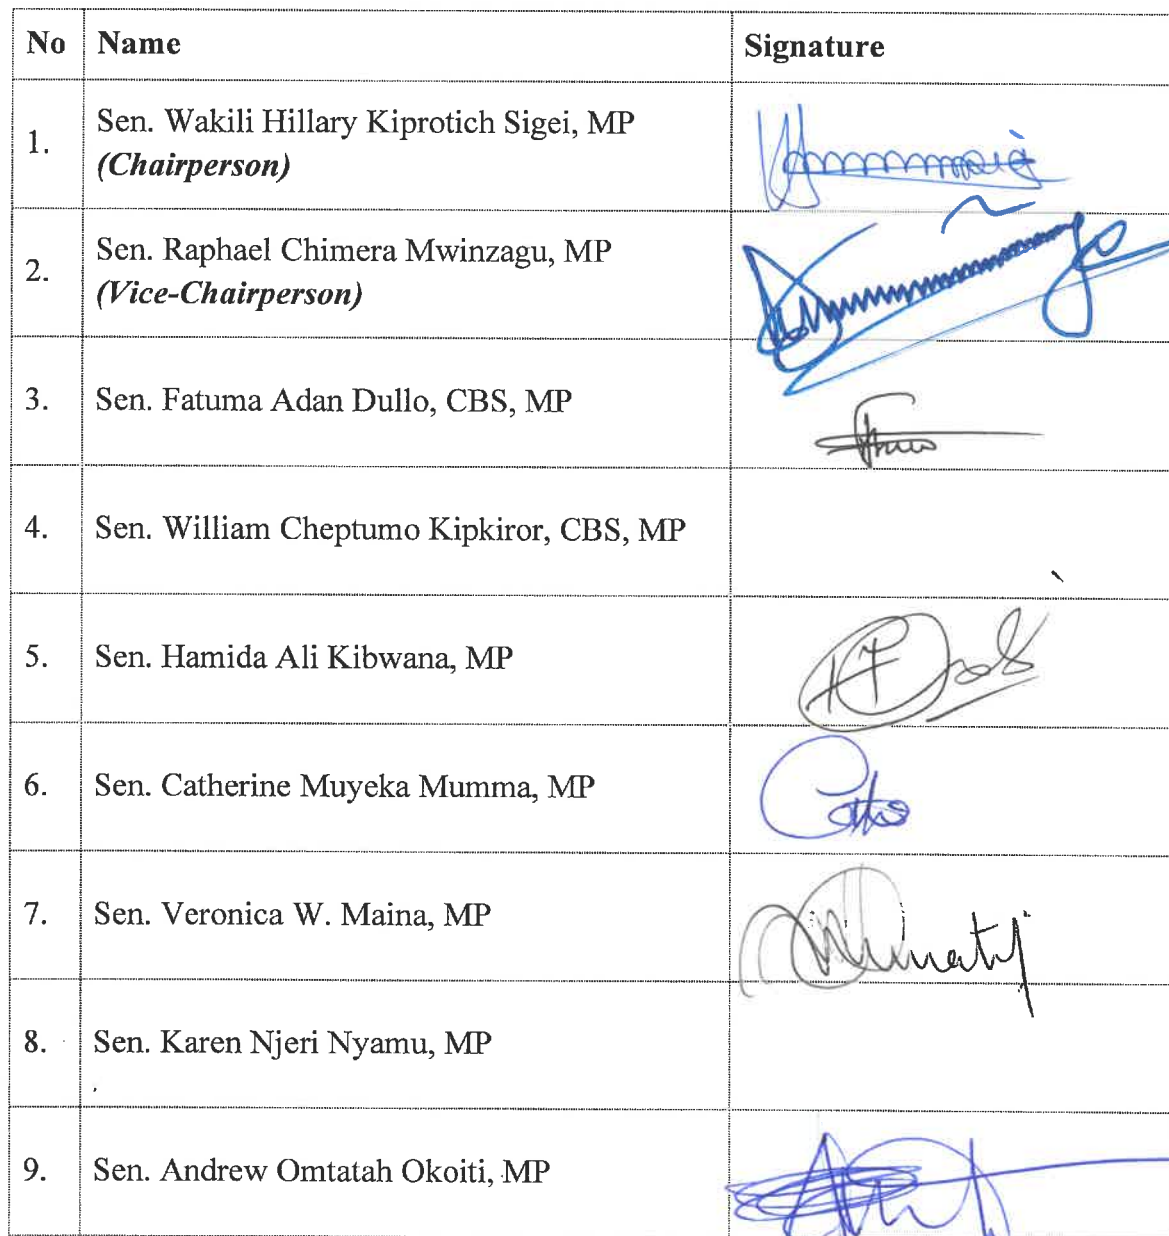 No Name Signature
1. Sen. Wakili Hillary Kiprotich Sigei, MP
(Chairperson)
2. Sen. Raphael Chimera Mwinzagu, MP
(Vice-Chairperson)
3. Sen. Fatuma Adan Dullo, CBS, MP
4. Sen. William Cheptumo Kipkiror, CBS, MP
5. Sen. Hamida Ali Kibwana, MP
6. Sen. Catherine Muyeka Mumma, MP
7. Sen. Veronica W. Maina, MP
8. Sen. Karen Njeri Nyamu, MP
9. Sen. Andrew Omtatah Okoiti, MP